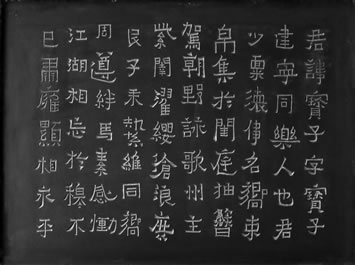 君諱寶子字寶子
建寧同樂人也君
少稟瓌偉名嚮束
帛集於閨庭抽簪
駕朝野詠歌州主
紫闥濯纓滄浪庶
民子來縶維同嚮
周遵絆馬素感慟
江湖相忘於穆不
已肅雍顯相永平